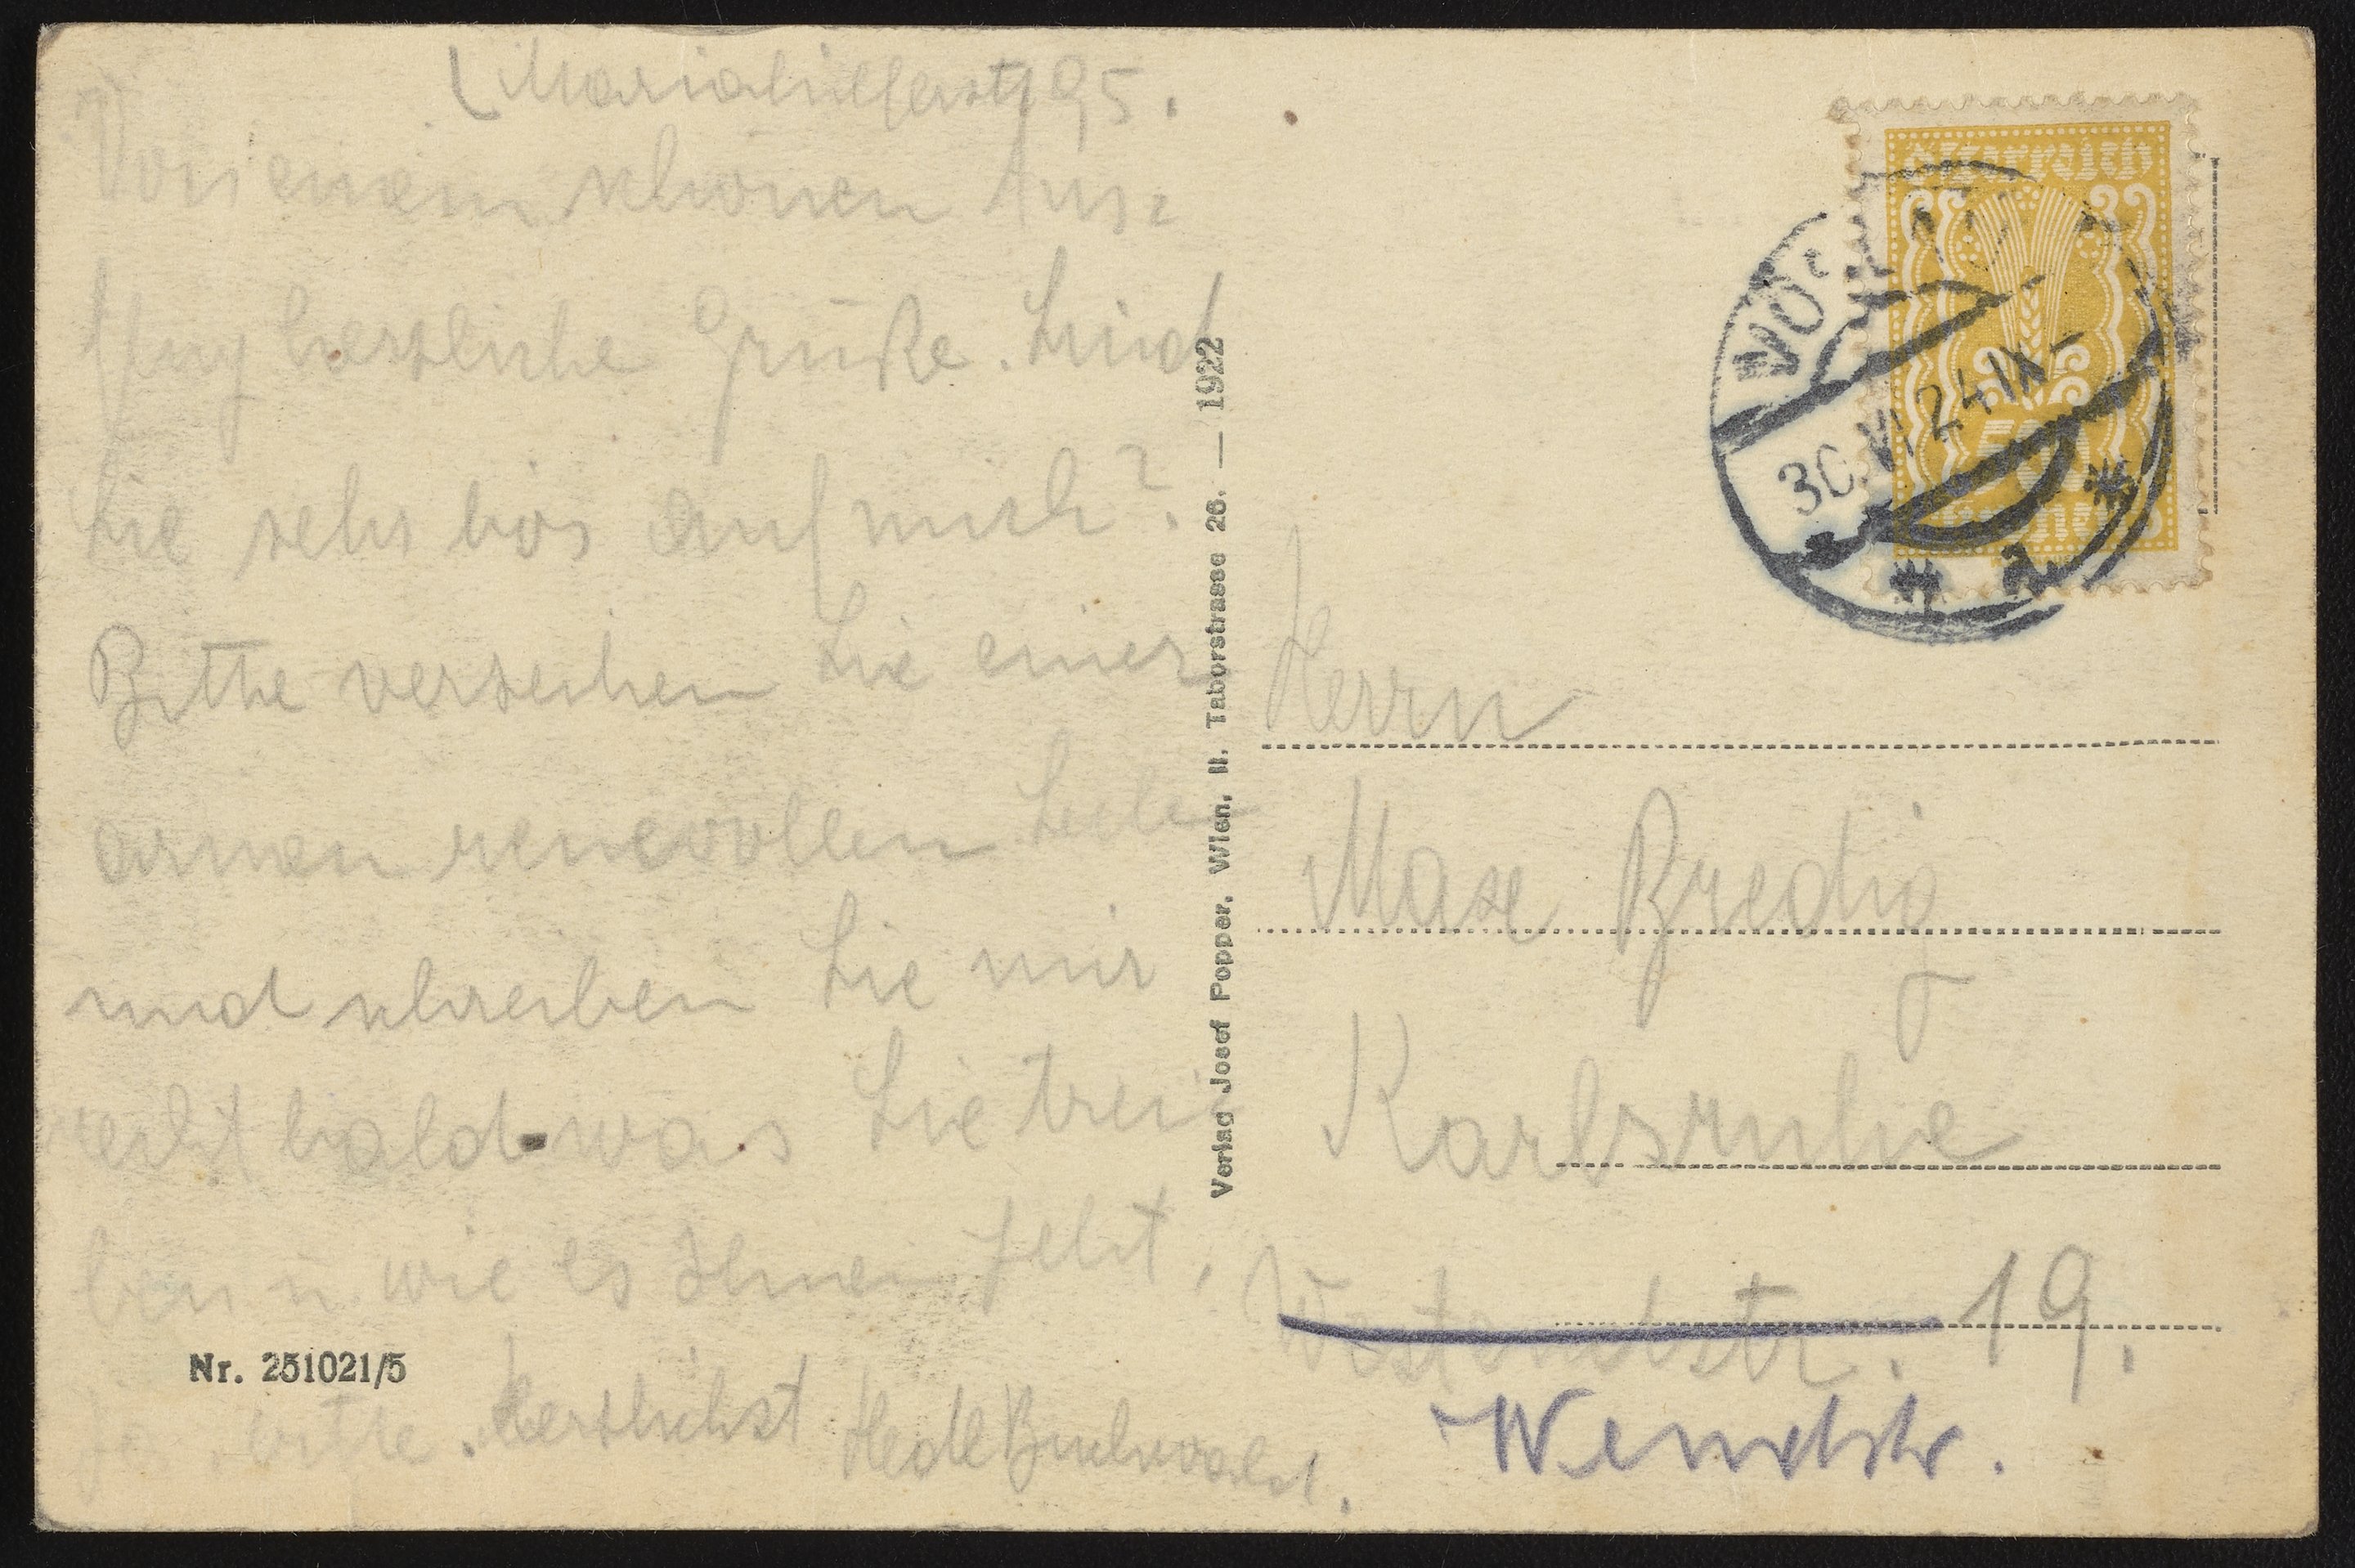 ( Mariahilferstr 95.
Von einem schönen Aus=
flug herzliche Grüße. Sind
Sie sehr bös auf mich?
Bitte verzeihen Sie einer
armen reuevollen Seele
und schreiben Sie mir
recht bald was Sie trei
ben u. wie es Ihnen geht,
ja, bitte. Herzlichst Hedl Buchwald.
Nr. 251021/5
Verlag Josef Popper, Wien, II. Taborstrasse 26. — 1922
Österreich
Kronen
VÖSLAU
30.VI 24 IX-
* a *
Herrn
Max Bredig
Karlsruhe
Westendstr. 19.
Wendtstr.